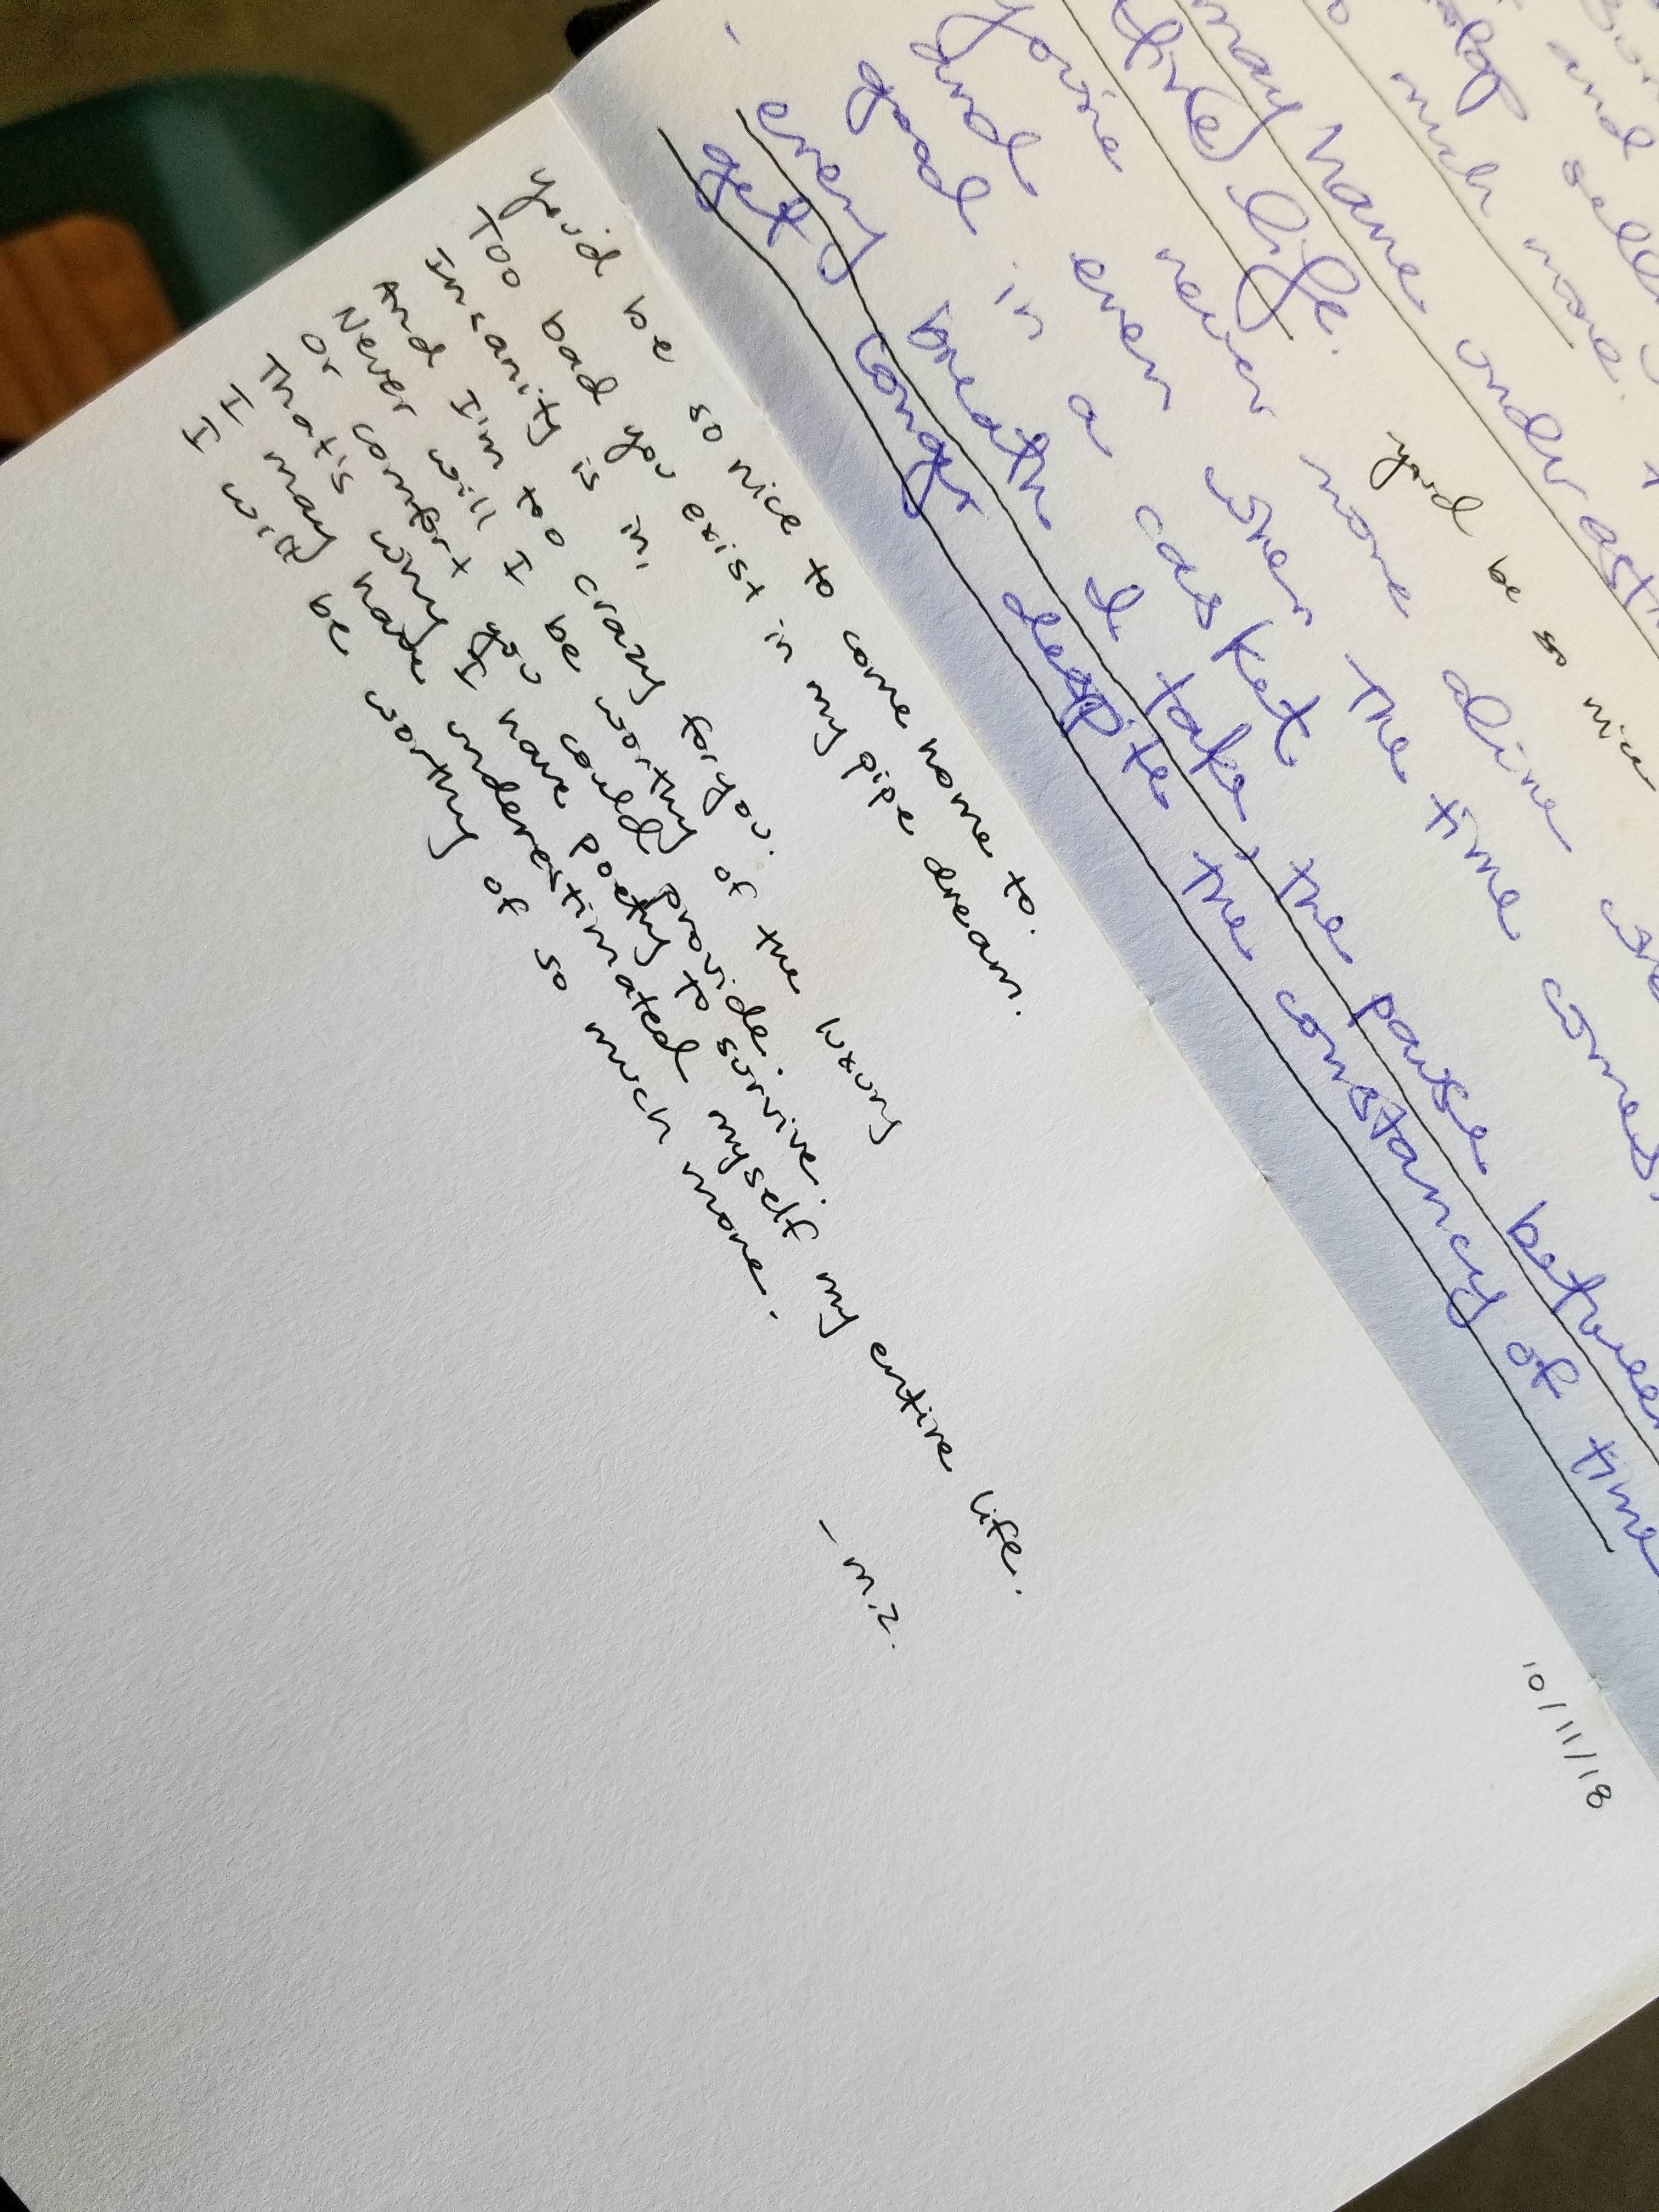 and
sell
much more.
may have underast
(tire) life.
you'd be so nice
you're never more alive
and even when the time comes,
good in a casket
every breath I take, the pause between
get longer despite the constancy of time
10/11/18
you'd be so nice to come home to.
Too bad you exist in my pipe dream.
Insanity is in,
And I'm too crazy for you.
Never will I be worthy of the luxury
Or comfort you could provide.
That's why I have poetry to survive.
I may have underestimated myself my entire life.
I will be worthy of so much more.
- m.z.